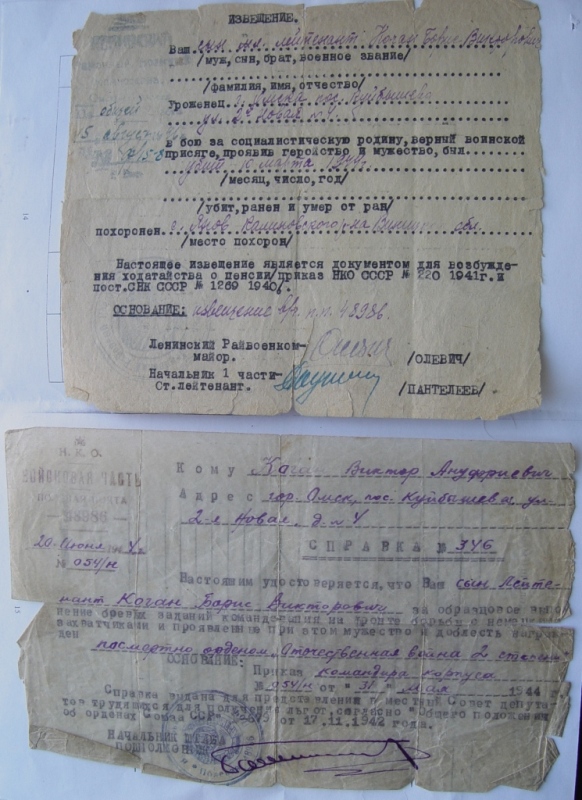 ИЗВЕЩЕНИЕ.
Ваш сын гв. лейтенант Коган Борис Викторович
/муж,сын,брат,военное звание/
/фамилия,имя,отчество/
Уроженец г. Омска пос. Куйбышева
ул. 2я Новая
15 августа
В бою за социалистическую родину, верный воинской
присяге, проявив геройство и мужество, был
убит 10 марта
/месяц,число,год/
/убит,ранен и умер от ран/
похоронен Калиновского р-на обл.
/место похорон/
Настоящее извещение является документом для возбужде-
ния ходатайства о пенсии/приказ НКО СССР № 220 1941г. и
пост.СНК СССР № 1269 1940/.
ОСНОВАНИЕ: извещение п.п. 48986.
Ленинский Райвоенком-
майор. /ОЛЕВИЧ/
Начальник 1 части-
Ст.лейтенант. /ПАНТЕЛЕЕВ/
Н.К.О.
Кому Коган Виктор
Адрес гор. Омск, пос. Куйбышева, ул.
2-я Новая, д. № 4
СПРАВКА № 346
20 Июня
№ 054/н
Настоящим удостоверяется, что Ваш сын Лейте-
нант Коган Борис Викторович за образцовое выпол-
нение боевых заданий командования на фронте борьбы с немец
захватчиками и проявленные при этом мужество и доблесть награж-
ден посмертно орденом Отечественная война 2 степени
ОСНОВАНИЕ:
Приказ командира корпуса
№ 054/н от "31" мая 1944 г.
Справка выдана для представления в местный Совет депута-
тов трудящихся для получения льгот, согласно "Общего положения
об орденах Союза ССР" от 17.11.1942 года.
НАЧАЛЬНИК ШТАБА